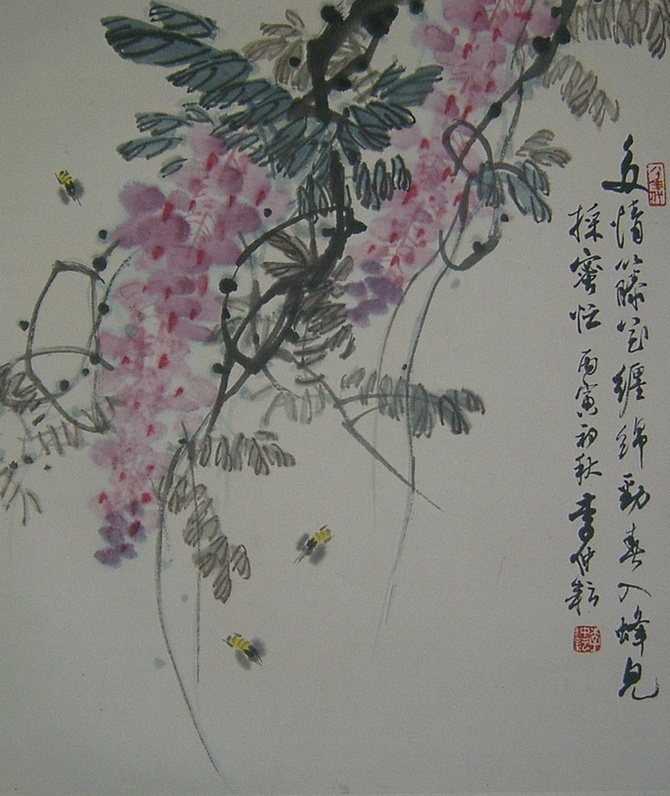 多情籐花纏綿動春入蜂兒
採蜜忙 丙寅初秋 李仲耘